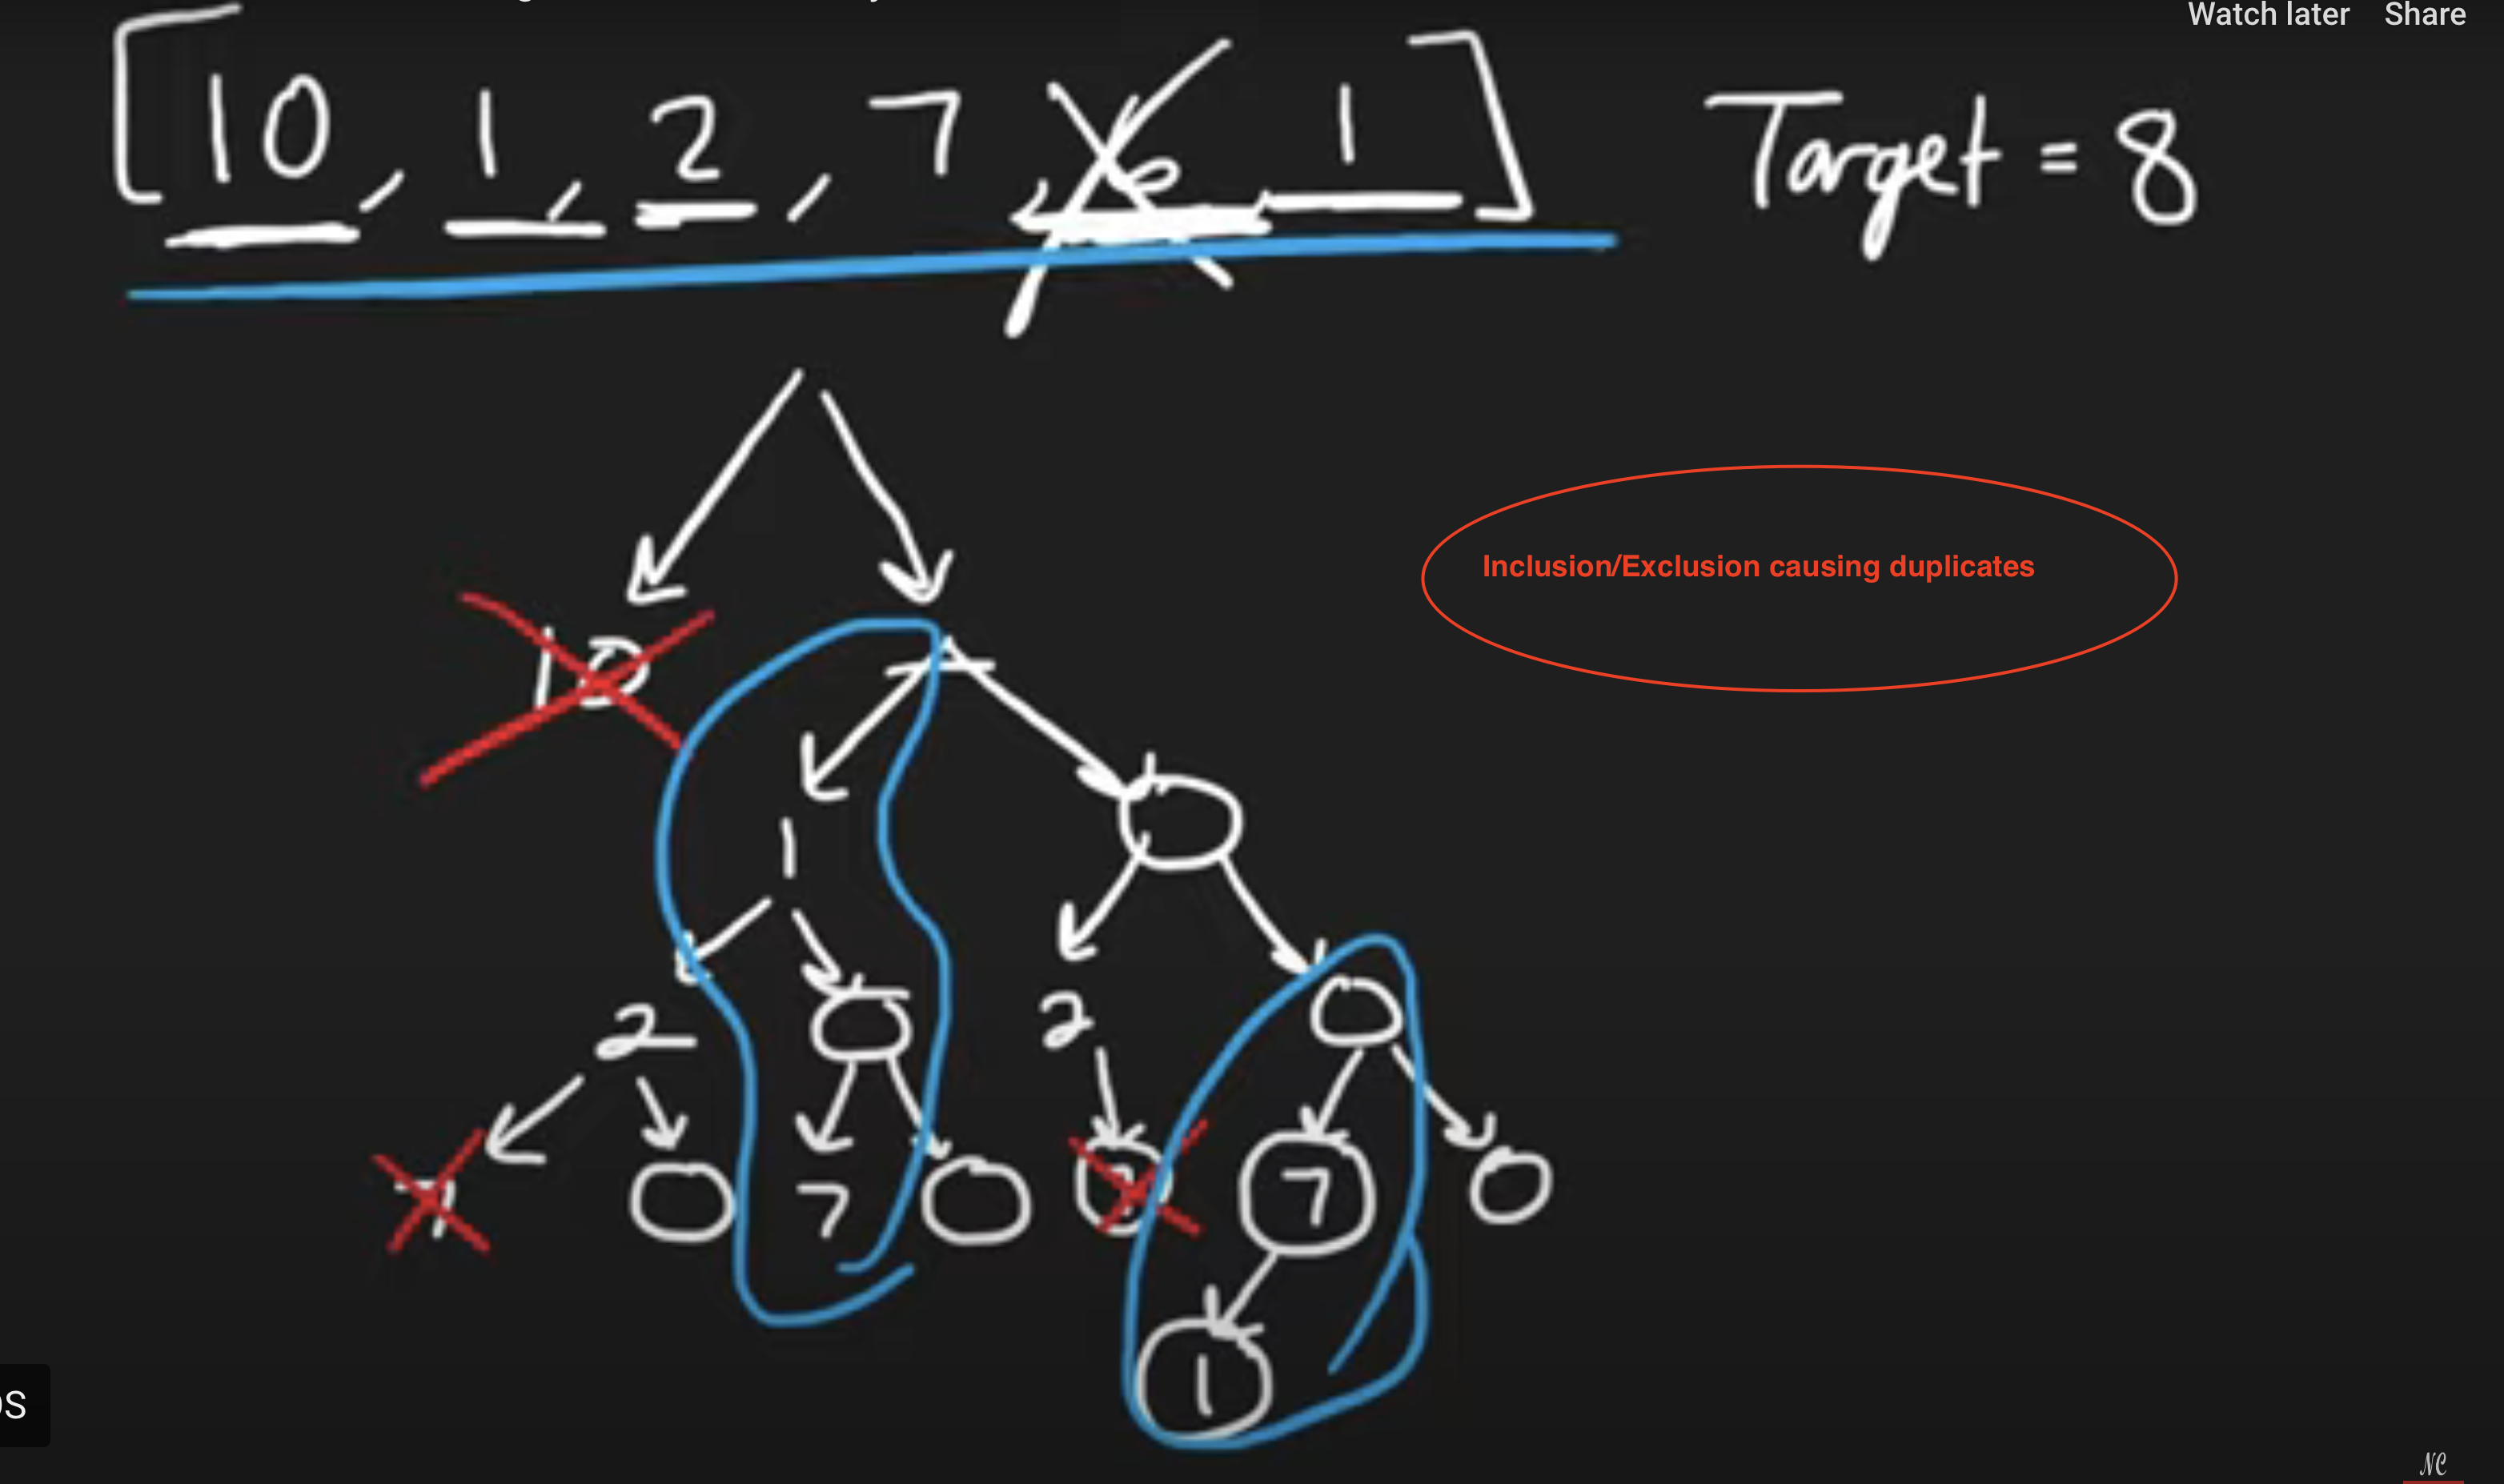 Watch later Share
[10, 1, 2, 7, 6, 1] Target = 8
Inclusion/Exclusion causing duplicates
10
1
2 2
7 7 7
1
NC